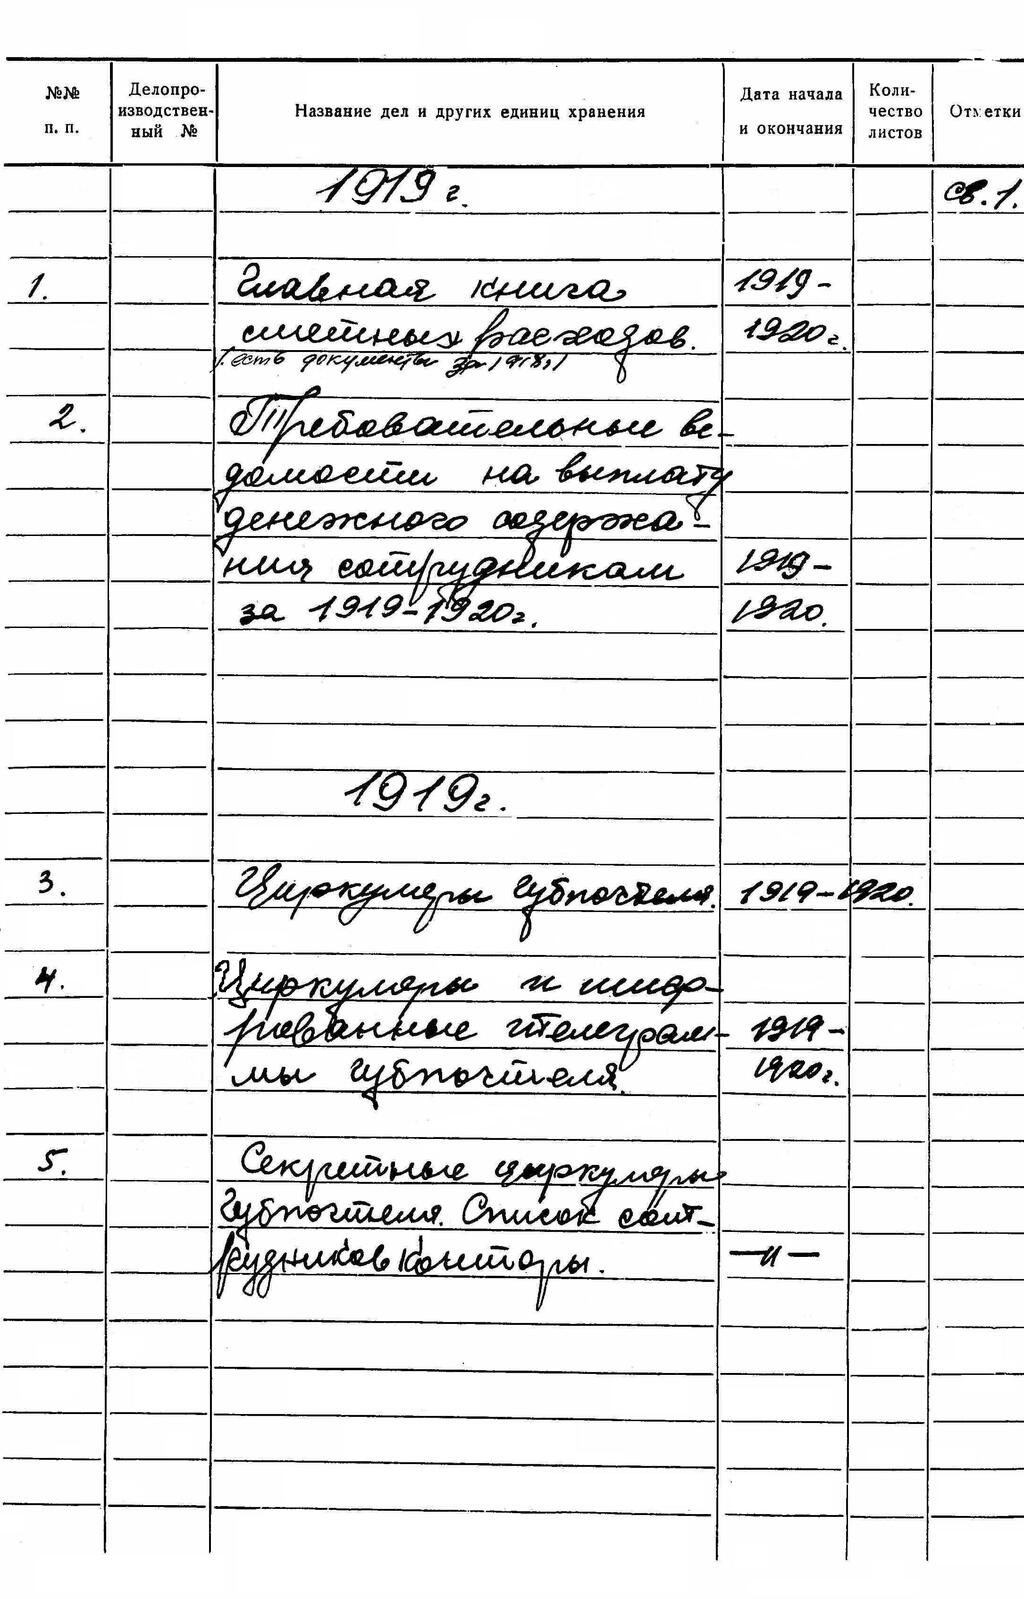 №№ п. п.
Делопро-
изводствен-
ный №
Название дел и других единиц хранения
Дата начала
и окончания
Коли-
чество
листов
Отметки
1919 г.
св. 1.
1. Главная книга 1919 -
сметных расходов. 1920 г.
(есть документы за 1918г)
2. Требовательные ве-
домости на выплату
денежного содержа-
ния сотрудникам 1919 -
за 1919-1920 г. 1920.
1919 г.
3. Циркуляры Губпочтеля. 1919-1920.
4. Циркуляры и шифр-
рованные телеграм- 1919-
мы Губпочтеля. 1920 г.
5. Секретные циркуляры
Губпочтеля. Список сот-
рудников конторы. —"—